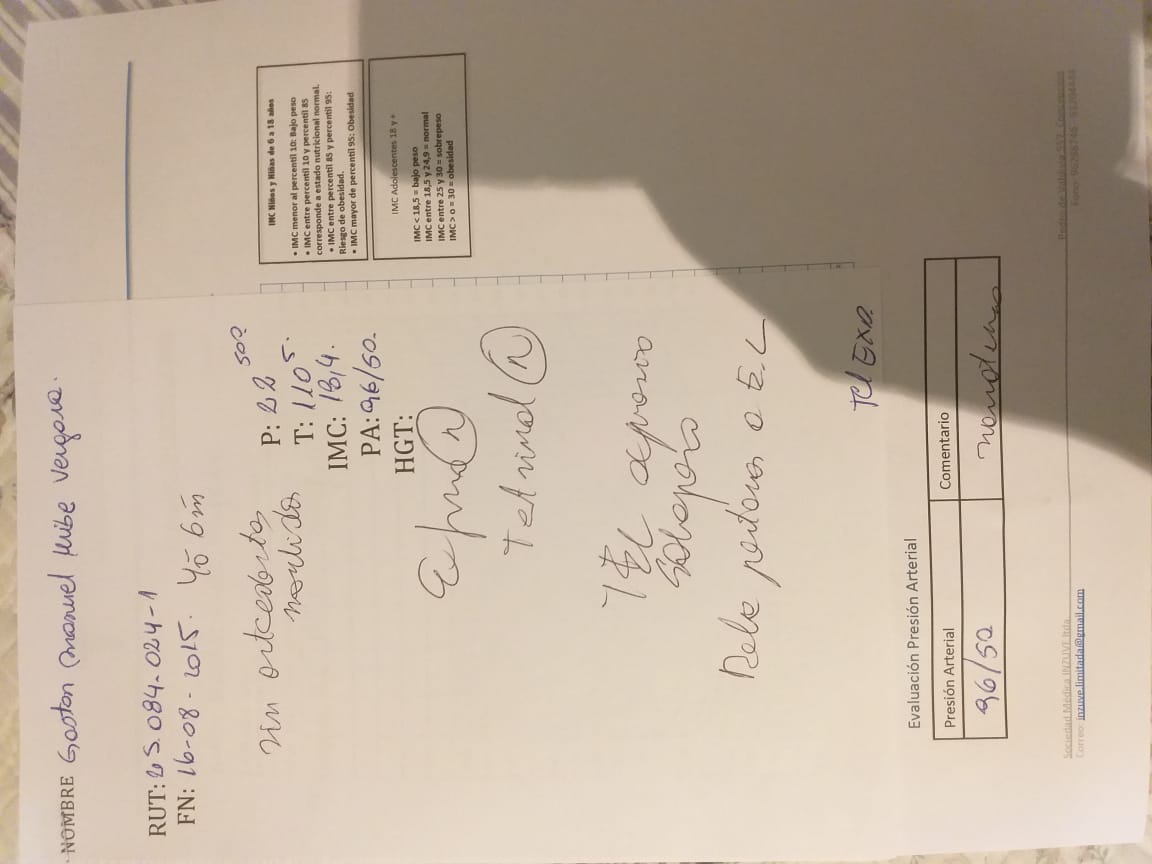 NOMBRE Gaston Manuel Uribe Vergara.
RUT: 25.084-024-1
FN: 16-08-2015. 4ō 6m̄
sin
P: 22 500
T: 110 5.
IMC: 18,4.
PA: 96/50.
HGT:
N
Testicul N
TEL expresivo
Sobrepeso
Debe a E.L
Tel Exp.
IMC Niños y Niñas de 6 a 18 años
• IMC menor al percentil 10: Bajo peso
• IMC entre percentil 10 y percentil 85
corresponde a estado nutricional normal.
• IMC entre percentil 85 y percentil 95:
Riesgo de obesidad.
• IMC mayor de percentil 95: Obesidad
IMC Adolescentes 18 y +
IMC < 18,5 = bajo peso
IMC entre 18,5 y 24,9 = normal
IMC entre 25 y 30 = sobrepeso
IMC > o = 30 = obesidad
Evaluación Presión Arterial
Presión Arterial
Comentario
96/50
Sociedad Médica INZUVE ltda
Correo: inzuve.limitada@gmail.com
Pedro de Valdivia 557, Concepción